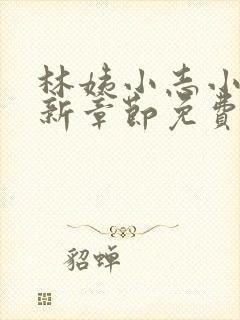 林姨小志小
新章節免費
貂蝉